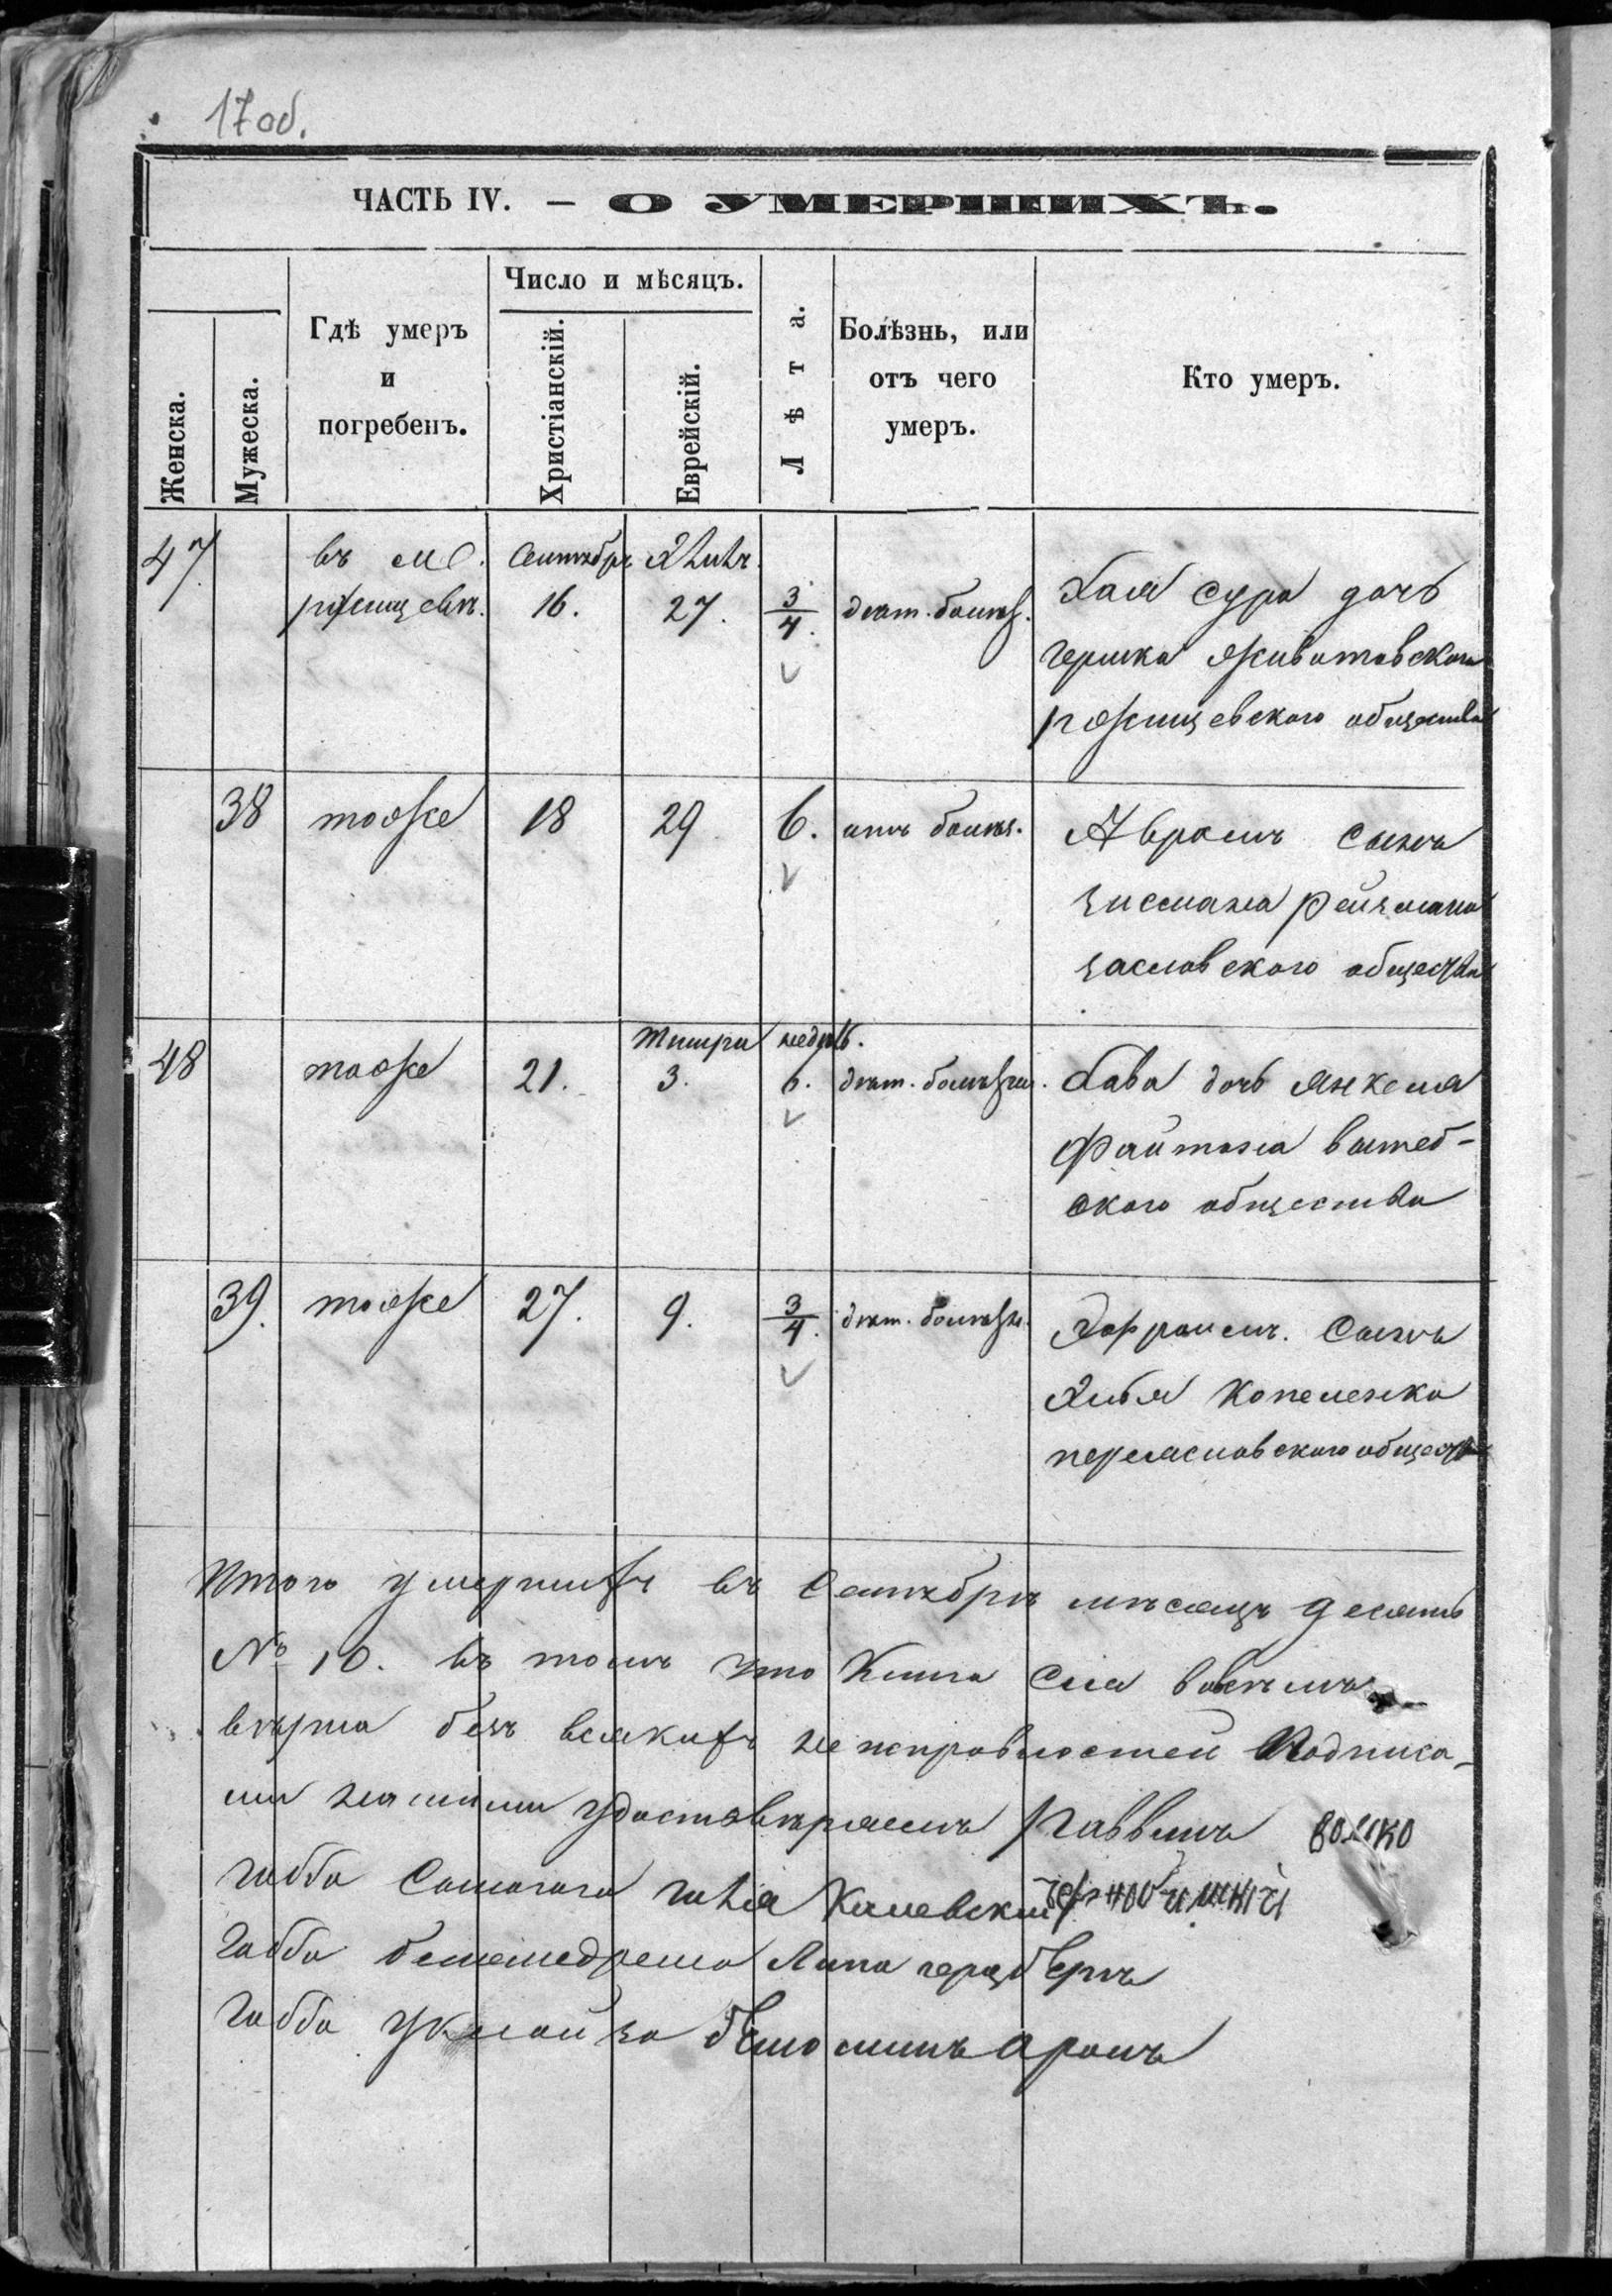 17 об.
ЧАСТЬ IV. — О УМЕРШИХЪ.
Женска.
Мужеска.
Гдѣ умеръ
и
погребенъ.
Число и мѣсяцъ.
Христіанскій.
Еврейскій.
Лѣта.
Болѣзнь, или
отъ чего
умеръ.
Кто умеръ.
47 въ м. Сентябрь
16. 27. 3/4. дѣт. болѣз. Хая Сура дочь
Гершка Животовскаго
ржищевского общества
38 тоже 18 29 6. отъ болѣз. Авромъ сынъ
Зисмана Рейзмана
заславского общества
Тишри недѣль.
48 тоже 21. 3. 6. дѣт. болѣзни. Хава дочь Янкеля
Файтана витеб-
ского общества
39. тоже 27. 9. 3/4. дѣт. болѣзн. Эфроимъ. Сынъ
Копеленка
переяславского общества
Итого умершихъ въ Сентябрѣ мѣсяцѣ десять
№ 10. въ томъ что Книга Сия вовсѣмъ
вѣрна безъ всякихъ неисправностей Подписа-
ми нашими удостовѣряемъ Раввинъ
Габбо Каневский
Габбо бешемедреша Липа
Габбо Аронъ